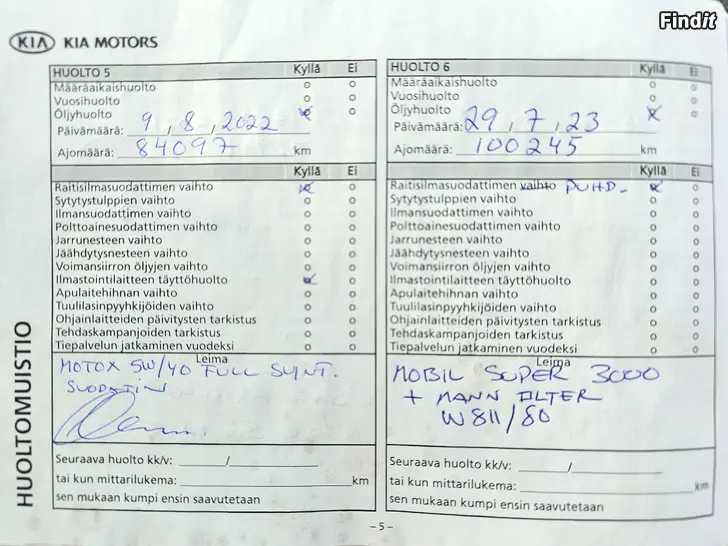 Findit
KIA KIA MOTORS
HUOLTOMUISTIO
HUOLTO 5 Kyllä Ei
Määräaikaishuolto
Vuosihuolto
Öljyhuolto
Päivämäärä: 9, 8, 2022
Ajomäärä: 84097 km
Kyllä Ei
Raitisilmasuodattimen vaihto
Sytytystulppien vaihto
Ilmansuodattimen vaihto
Polttoainesuodattimen vaihto
Jarrunesteen vaihto
Jäähdytysnesteen vaihto
Voimansiirron öljyjen vaihto
Ilmastointilaitteen täyttöhuolto
Apulaitehihnan vaihto
Tuulilasinpyyhkijöiden vaihto
Ohjainlaitteiden päivitysten tarkistus
Tehdaskampanjoiden tarkistus
Tiepalvelun jatkaminen vuodeksi
Leima
MOTOX 5W/40 FULL SYNT.
SUODATIN
Seuraava huolto kk/v: /
tai kun mittarilukema: km
sen mukaan kumpi ensin saavutetaan
HUOLTO 6 Kyllä Ei
Määräaikaishuolto
Vuosihuolto
Öljyhuolto
Päivämäärä: 29, 7, 23
Ajomäärä: 100245 km
Kyllä Ei
Raitisilmasuodattimen vaihto PUHD_
Sytytystulppien vaihto
Ilmansuodattimen vaihto
Polttoainesuodattimen vaihto
Jarrunesteen vaihto
Jäähdytysnesteen vaihto
Voimansiirron öljyjen vaihto
Ilmastointilaitteen täyttöhuolto
Apulaitehihnan vaihto
Tuulilasinpyyhkijöiden vaihto
Ohjainlaitteiden päivitysten tarkistus
Tehdaskampanjoiden tarkistus
Tiepalvelun jatkaminen vuodeksi
Leima
MOBIL SUPER 3000
+ MANN FILTER
W811/80
Seuraava huolto kk/v: /
tai kun mittarilukema: km
sen mukaan kumpi ensin saavutetaan
– 5 –